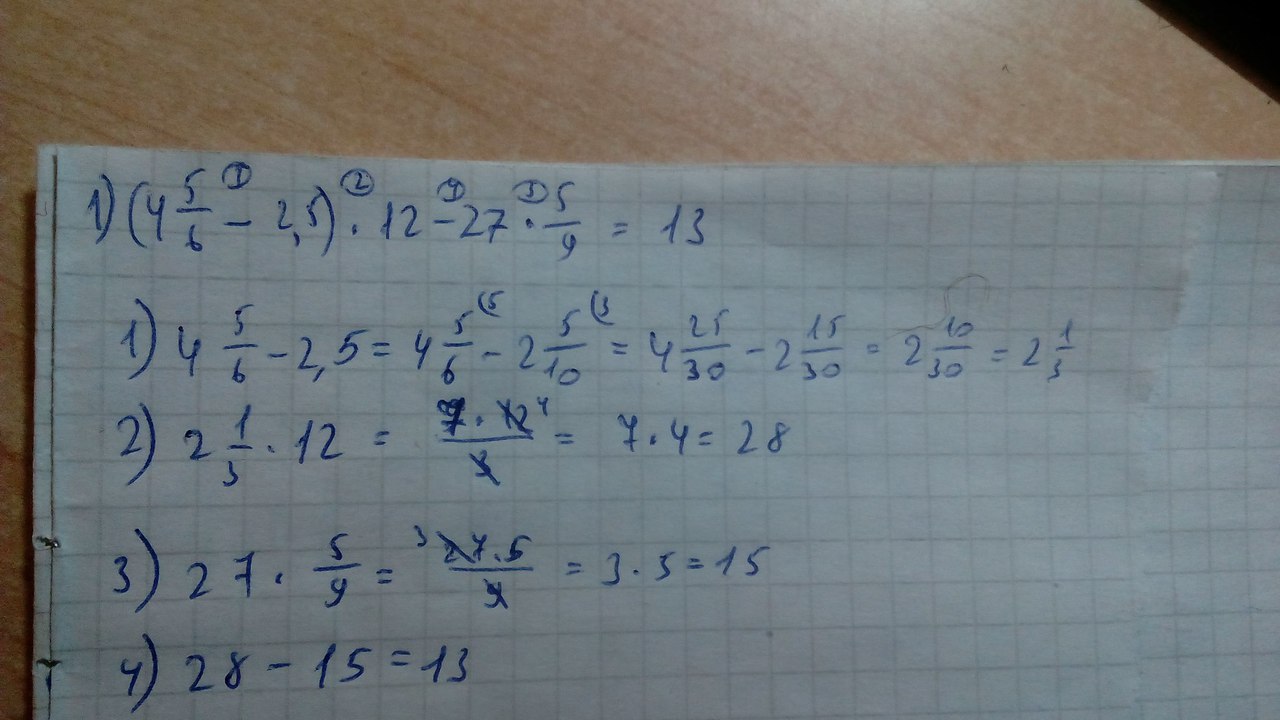 1) (4 5/6 - 2,5) · 12 - 27 · 5/9 = 13
1) 4 5/6 - 2,5 = 4 5/6 (5 - 2 5/10 (3 = 4 25/30 - 2 15/30 = 2 10/30 = 2 1/3
2) 2 1/3 · 12 = 7 · 12 4/3 = 7 · 4 = 28
3) 27 · 5/9 = 3 27 · 5/9 = 3 · 5 = 15
4) 28 - 15 = 13